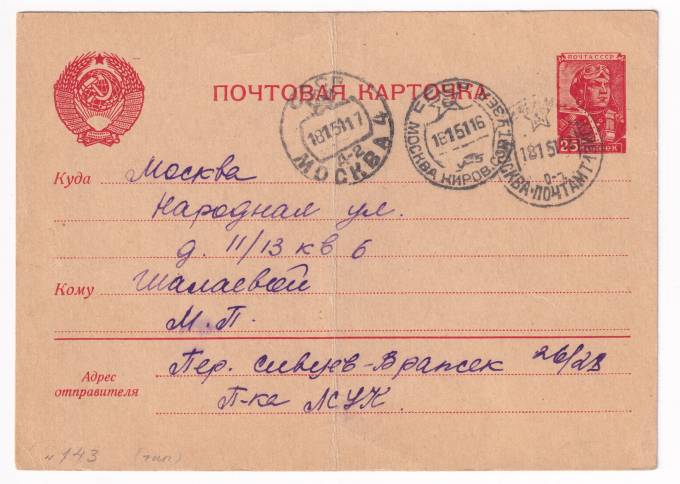 ПОЧТА СССР
ПОЧТОВАЯ КАРТОЧКА
25 КОПЕЕК
СССР
18 1 51 17
Д-2
МОСКВА 4
18 1 51 16
МОСКВА КИРОВ
18 1 51
МОСКВА-ПОЧТАМТ
Куда Москва
Народная ул.
д. 11/13 кв 6
Кому Шалаевой
М. П.
Адрес отправителя Пер. Сивцев-Вражек 26/28
П-ка
N 143 (тип)